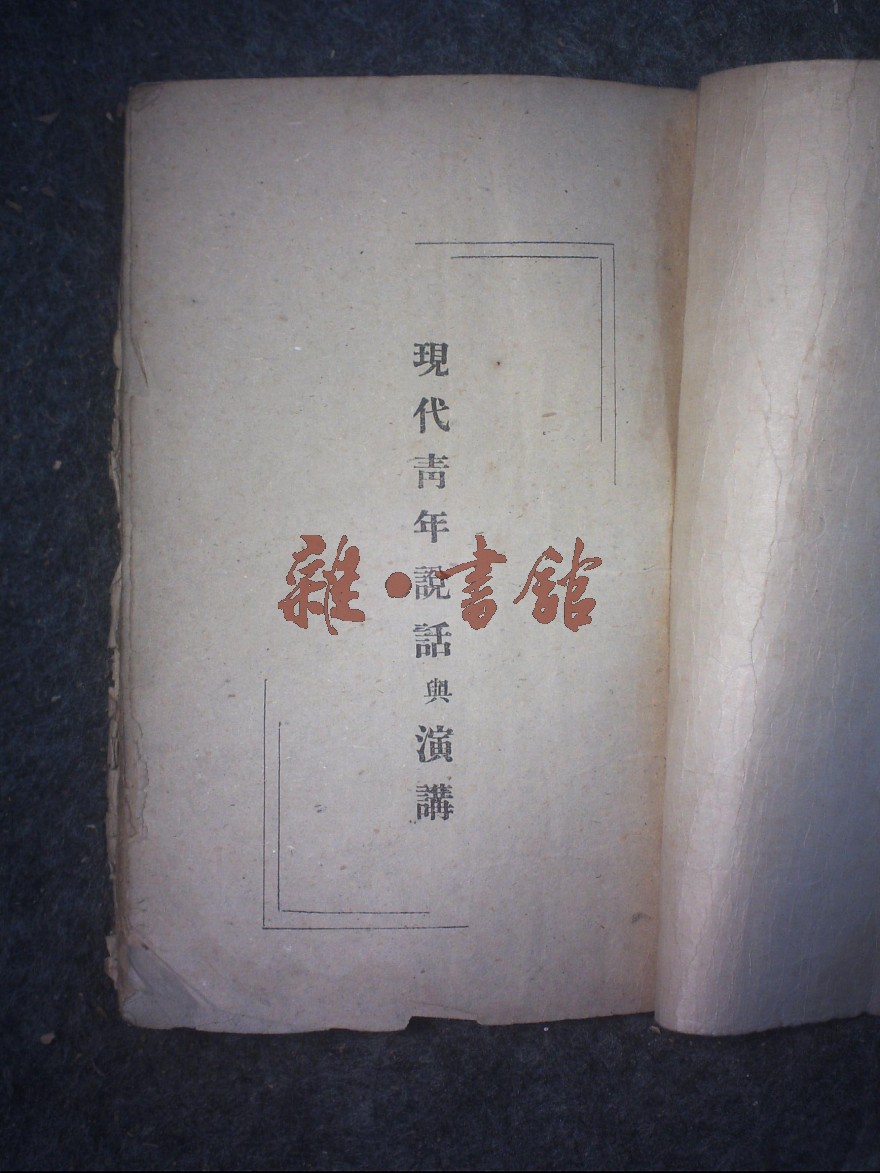 現代青年說話與演講
雜·書館